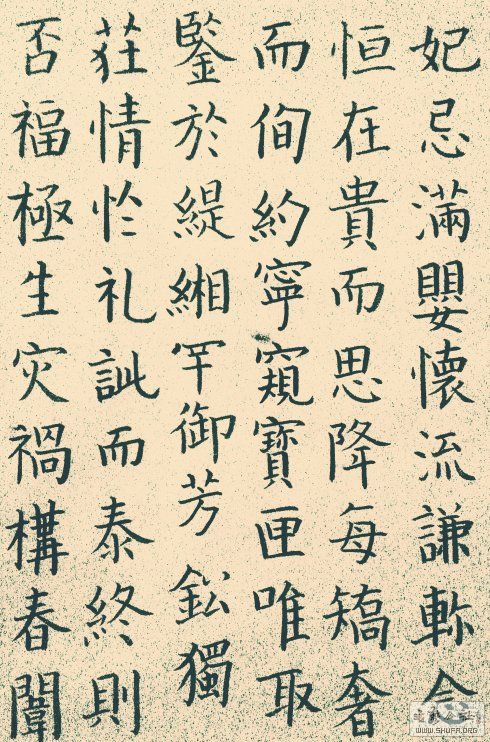 妃忌滿嬰懷流謙軫念
恒在貴而思降每矯奢
而侚約寧窺寶匣唯取
鑒於緹緗罕御芳鈆獨
荘情礼訿而泰終則
否福極生灾禍構春闈
WWW.SHUFA.ORG